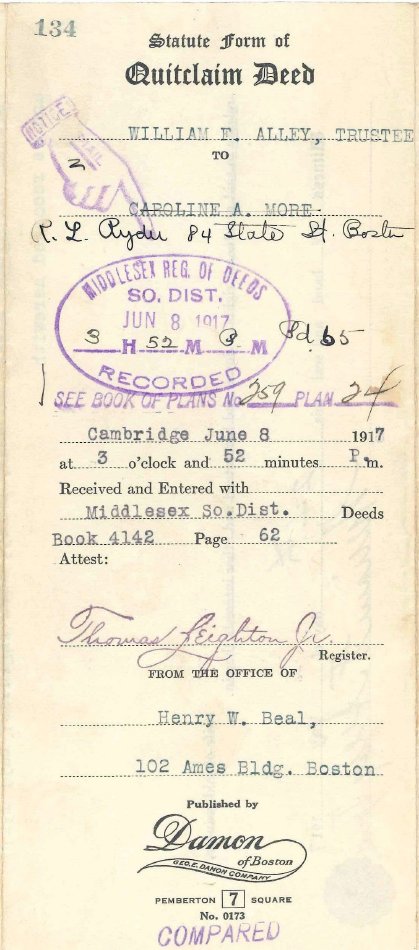 134
Statute Form of
Quitclaim Deed
WILLIAM F. ALLEY, TRUSTEE
TO
NOTICE
MAIL
CAROLINE A. MORE
R. L. Ryder 84 State St. Boston
MIDDLESEX REG. OF DEEDS
SO. DIST.
JUN 8 1917
3 H 52 M P M
Pd. 65
RECORDED
SEE BOOK OF PLANS No. 259 PLAN 24
Cambridge June 8 1917
at 3 o'clock and 52 minutes P.m.
Received and Entered with
Middlesex So.Dist. Deeds
Book 4142 Page 62
Attest:
Thomas Leighton Jr.
Register.
FROM THE OFFICE OF
Henry W. Beal,
102 Ames Bldg. Boston
Published by
Damon
of Boston
GEO. E. DAMON COMPANY
PEMBERTON 7 SQUARE
No. 0173
COMPARED